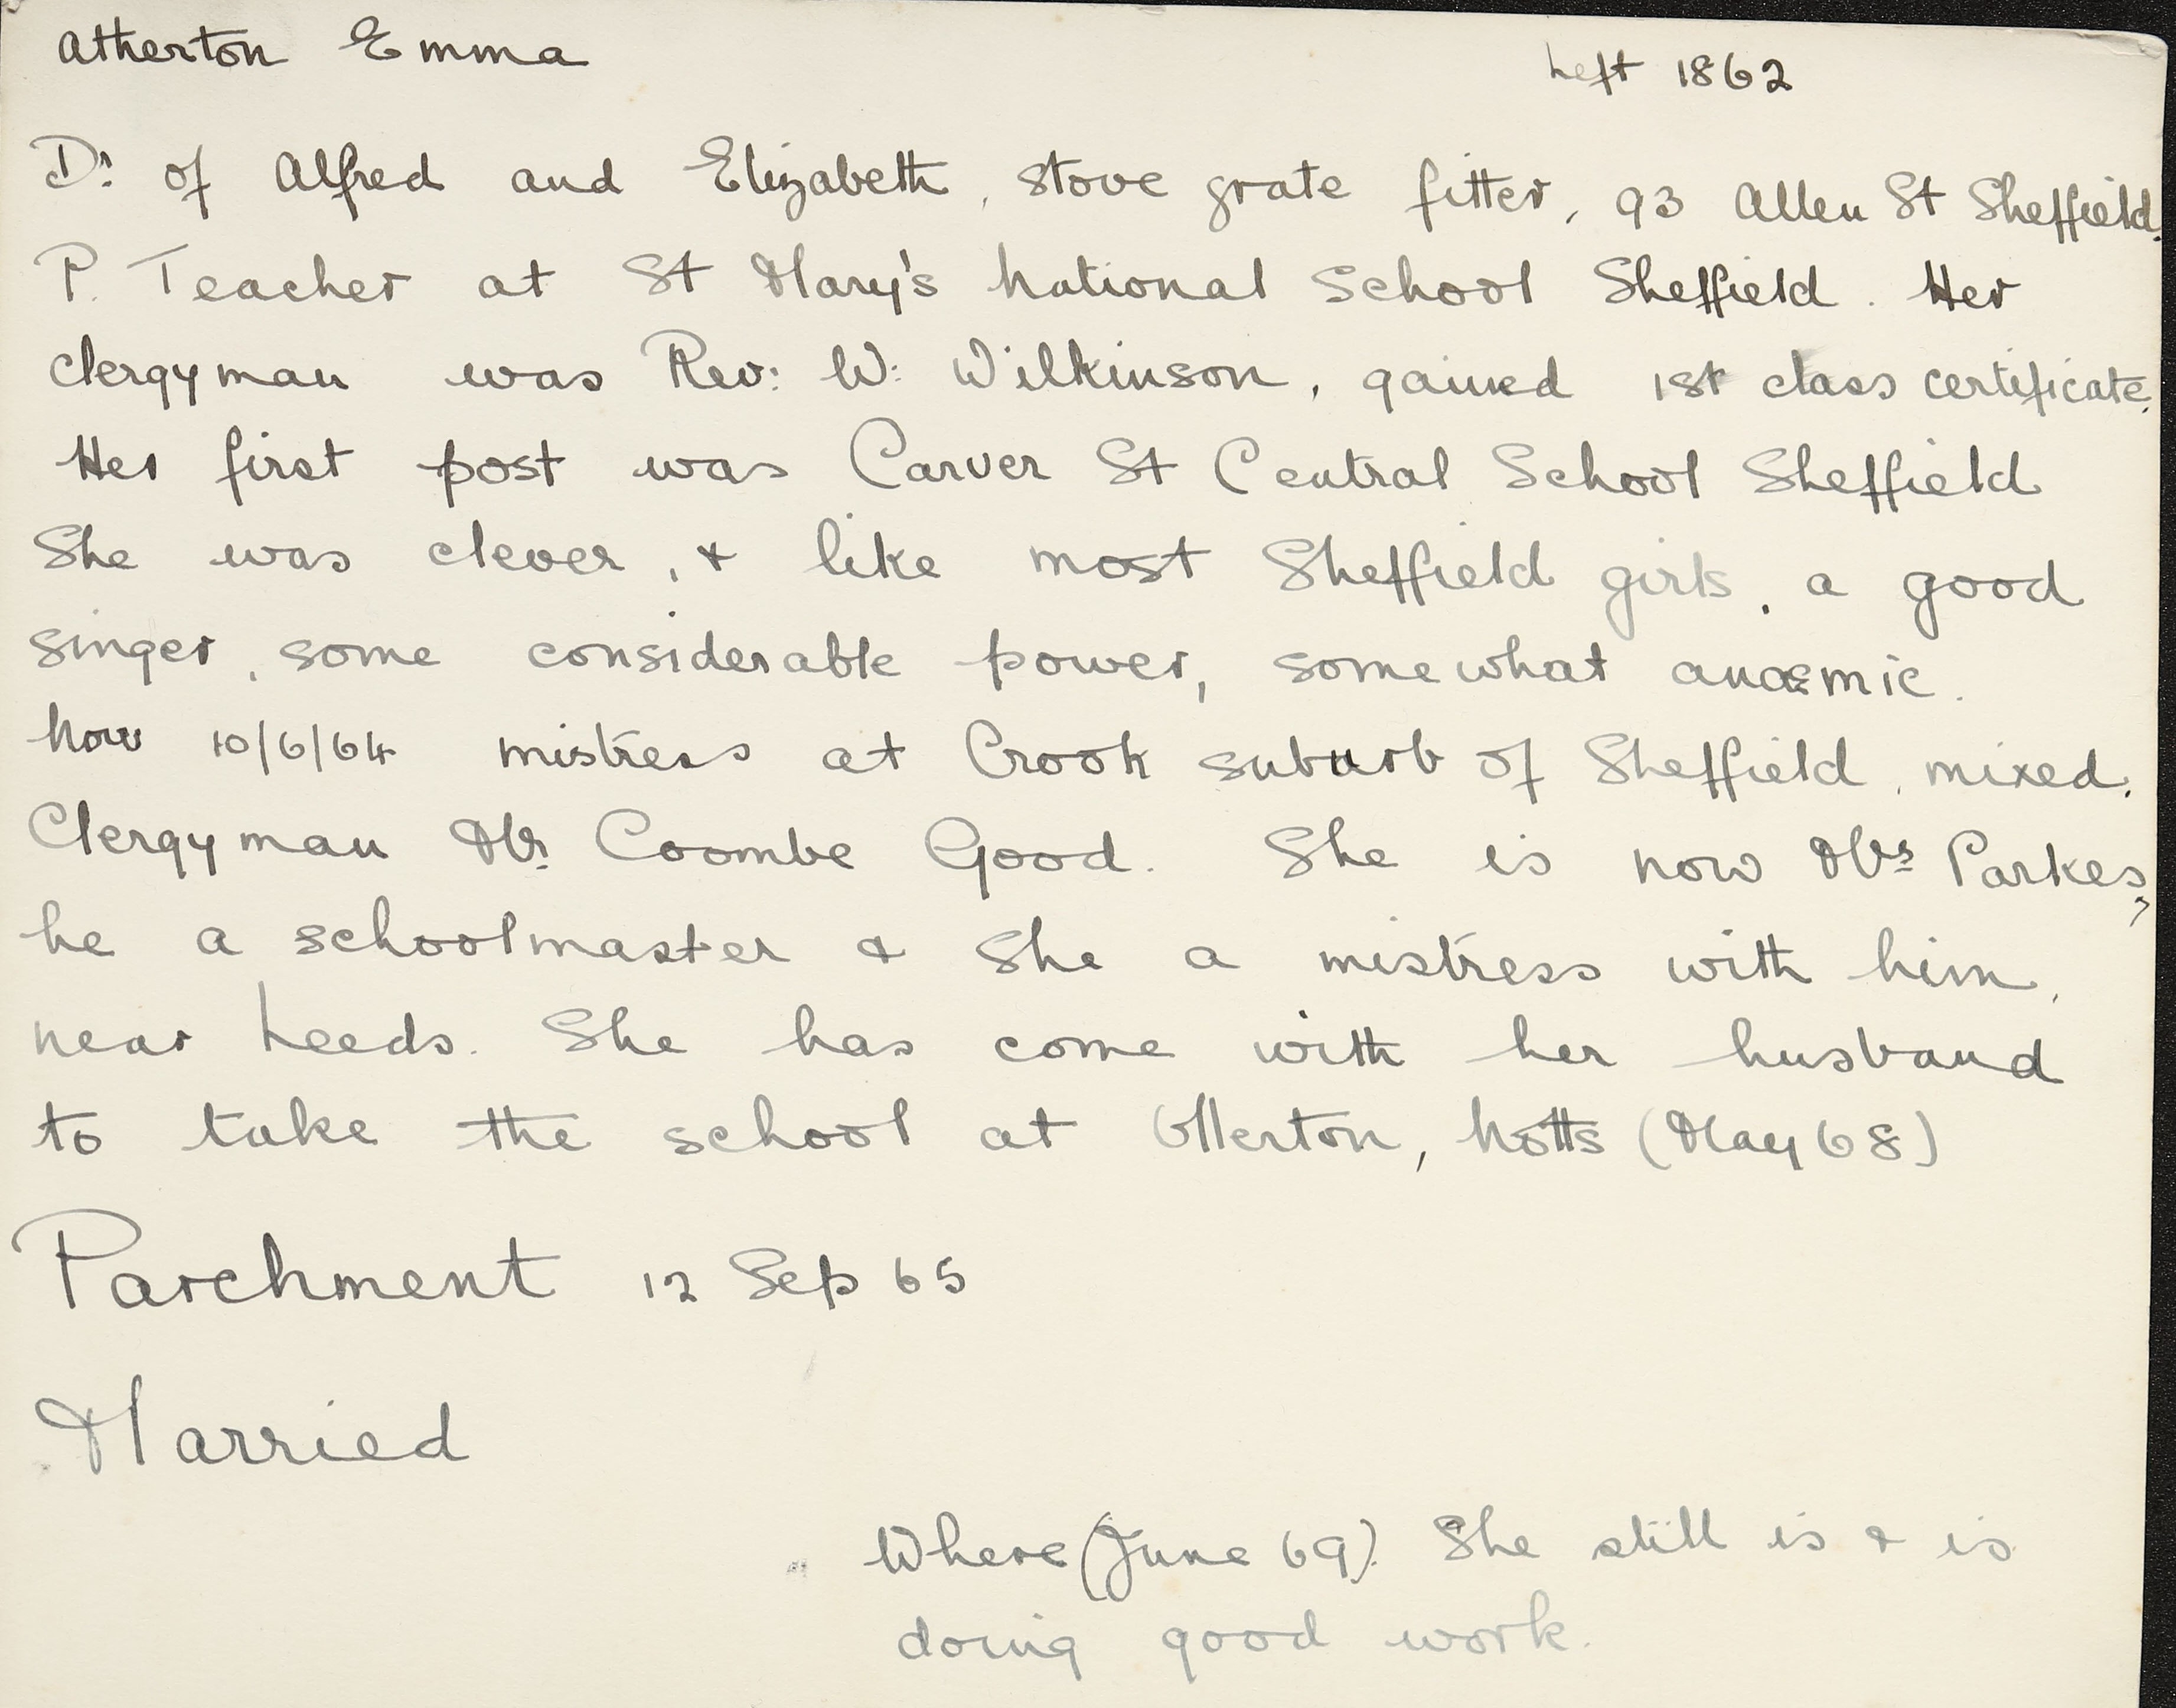 Atherton Emma Left 1862
Dr of Alfred and Elizabeth, stove grate fitter, 93 Allen St Sheffield.
P. Teacher at St Mary's National School Sheffield. Her
clergyman was Rev: W: Wilkinson, gained 1st class certificate.
Her first post was Carver St Central School Sheffield
She was clever, & like most Sheffield girls, a good
singer, some considerable power, somewhat anaemic.
Now 10/6/64 mistress at Crook suburb of Sheffield, mixed.
Clergyman Mr Coombe Good. She is now Mrs Parkes,
he a schoolmaster & she a mistress with him,
near Leeds. She has come with her husband
to take the school at Ollerton, Notts (May 68)
Parchment 12 Sep 65
Married
Where (June 69) She still is & is
doing good work.